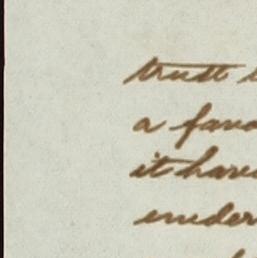 trust
a favo
it have
under